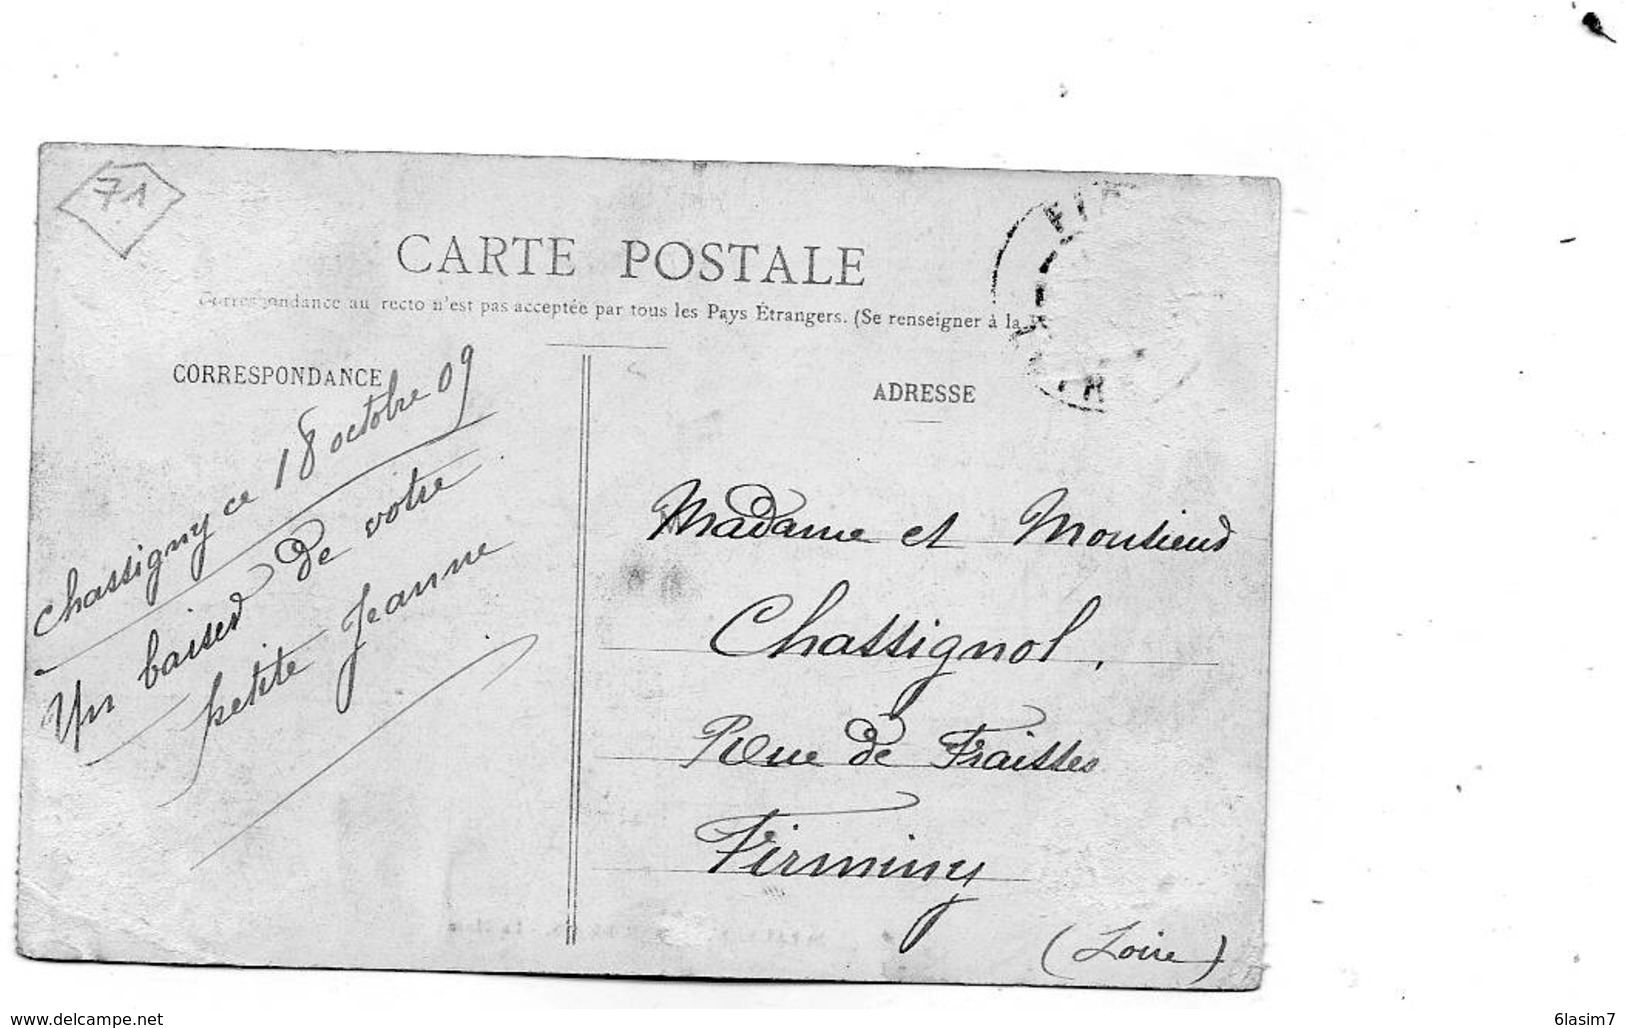 71
CARTE POSTALE
Correspondance au recto n'est pas acceptée par tous les Pays Étrangers. (Se renseigner à la
CORRESPONDANCE
Chassigny ce 18 octobre 09
Un baiser de votre
petite Jeanne
ADRESSE
Madame et Monsieur
Chassignol,
Rue de Fraisses
Firminy
(Loire)
www.delcampe.net
6lasim7